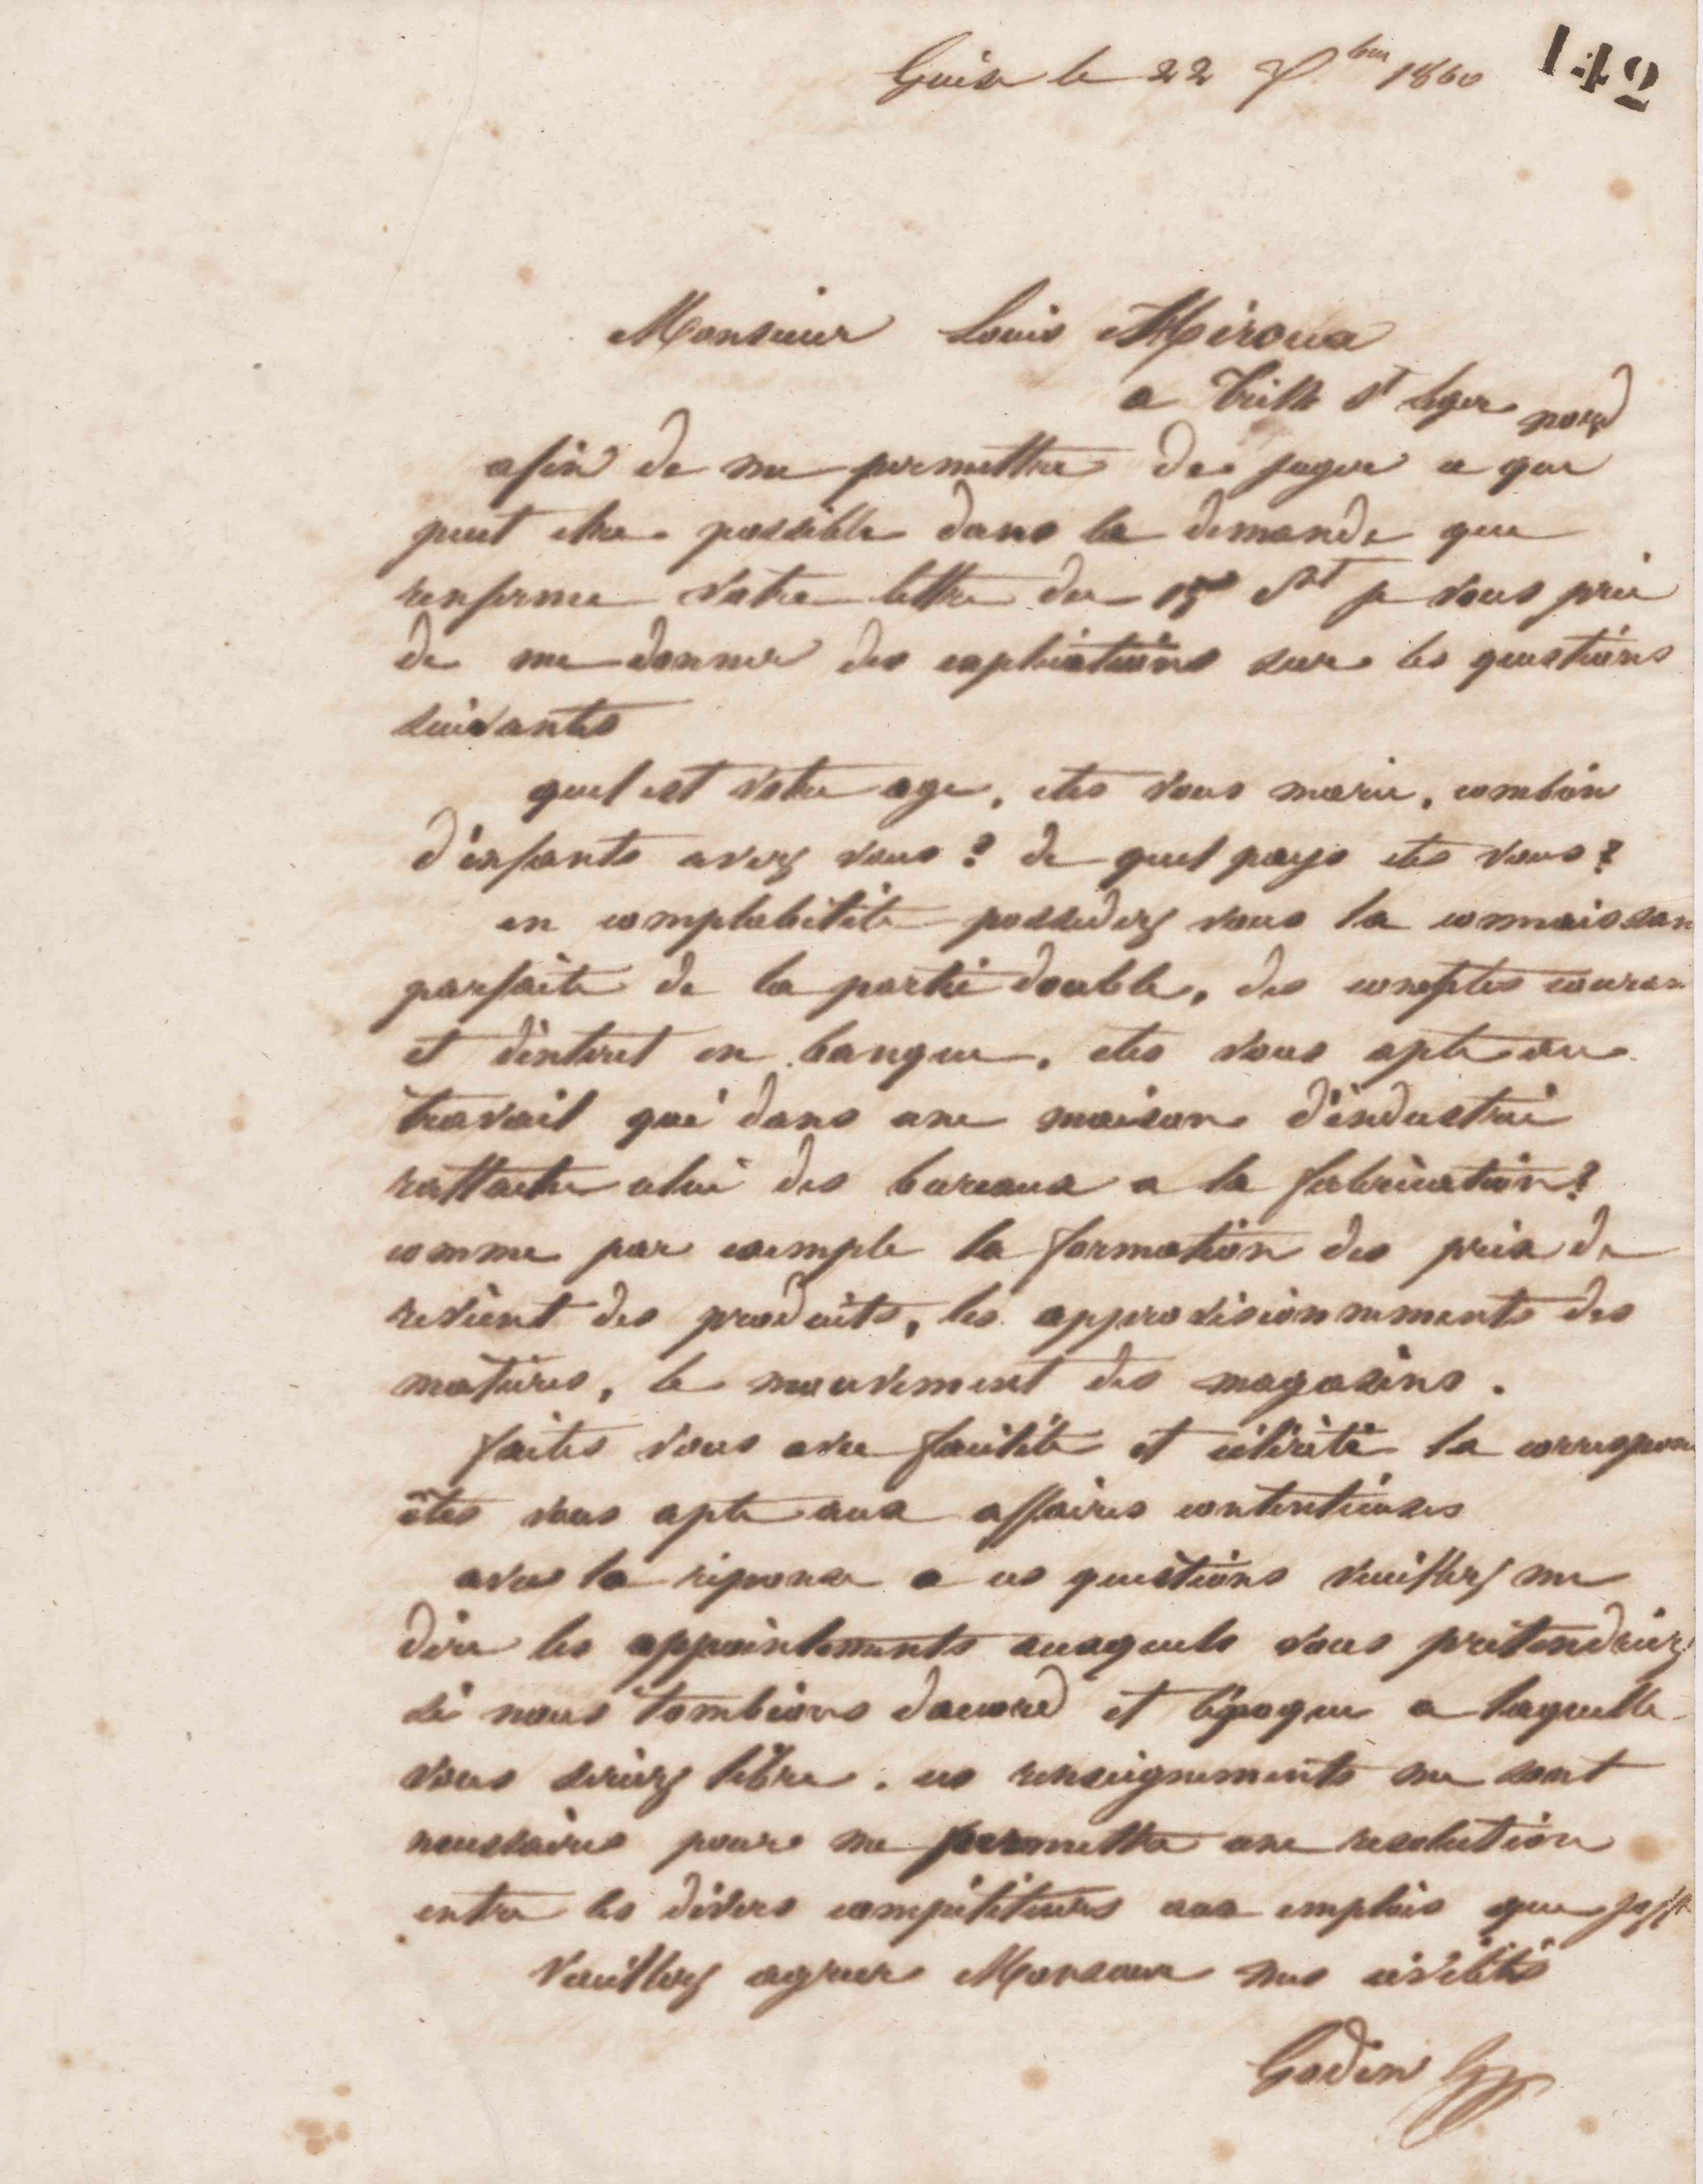 Guise le 22 7bre 1860
142
Monsieur Louis Miroux
a Trith St Leger nord
afin de me permettre de juger ce que
peut etre possible dans la demande que
renferme votre lettre du 15 ct je vous prie
de me donner des explications sur les questions
suivantes
quel est votre age, etes vous marie, combien
d'enfants avez vous ? de quel pays etes vous ?
en comptabilité possedez vous la connaissan
parfaite de la partie double, des comptes couran
et d'interet en banque, etes vous apte au
travail qui dans une maison d'industrie
rattache celui des bureaux a la fabrication ?
comme par exemple la formation des prix de
revient des produits, les approvisionnements des
matieres, le mouvement des magasins.
faites vous avec facilité et célérité la correspon
êtes vous apte aux affaires contentieuses
avec la reponse a ces questions veuillez me
dire les appointements auxquels vous pretendriez
si nous tombions daccord et l'époque a laquelle
vous seriez libre. ces renseignements me sont
necessaires pour me permettre une resolution
entre les divers compétiteurs aux emplois que
Veuillez agreer Monsieur mes civilités
Godin